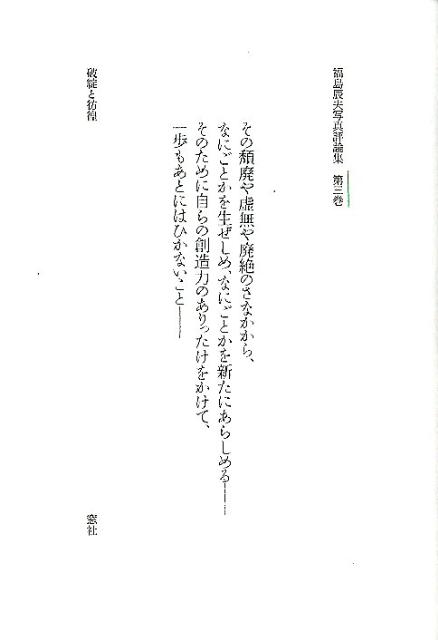 福島辰夫写真評論集　第三巻
その頽廃や虚無や廃絶のさなかから、
なにごとかを生ぜしめ、なにごとかを新たにあらしめる――
そのために自らの創造力のありったけをかけて、
一歩もあとにはひかないこと――
破綻と彷徨
窓社